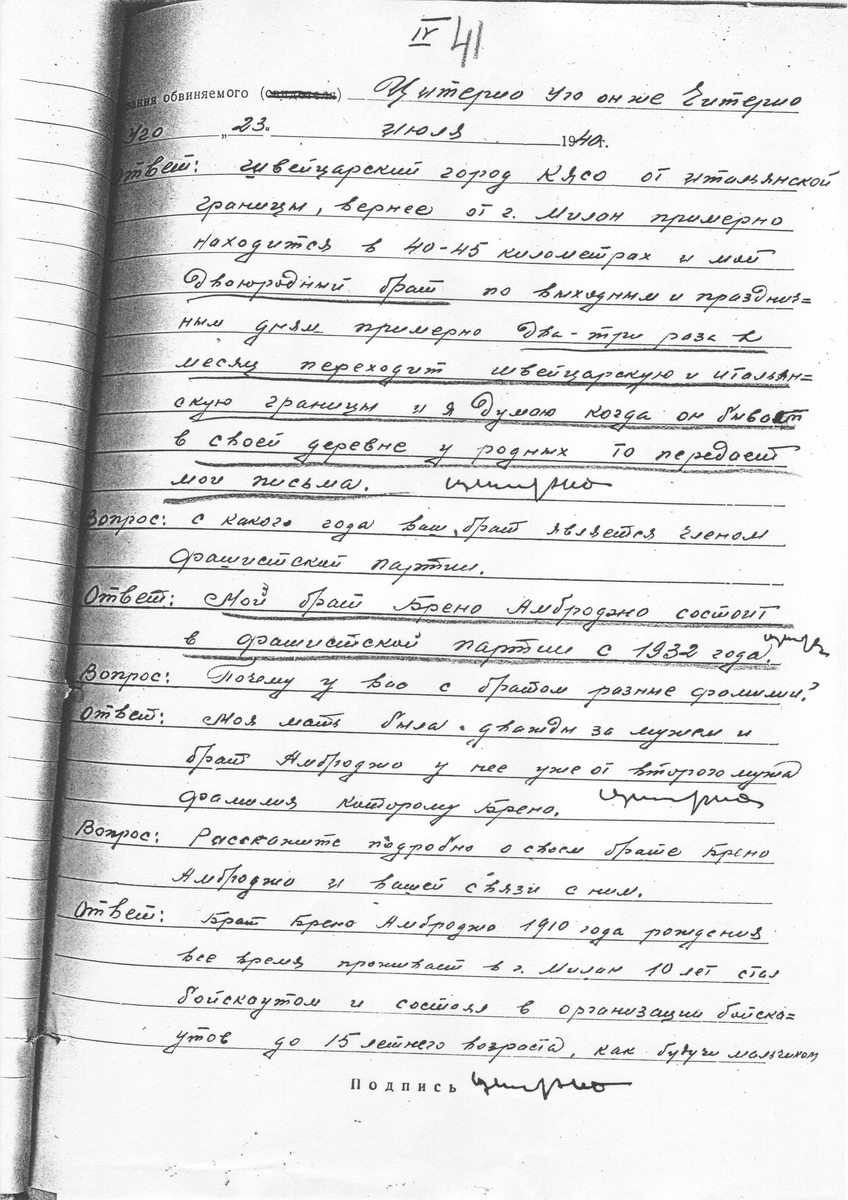 IV 41
вания обвиняемого (свидетеля) Цитерио Уго он же Читерио
Уго „23“ июля 1940г.
Ответ: Швейцарский город Кясо от итальянской
границы, вернее от г. Милон примерно
находится в 40-45 километрах и мой
двоюродный брат по выходным и праздниз=
ным дням примерно два-три раза в
месяц переходит швейцарскую и итальян=
скую границы и я думою когда он бывает
в своей деревне у родных то передает
мои письма. Цитерио
Вопрос: с какого года ваш брат является членом
фашистской партии.
Ответ: Мой брат Брено Амброджо состоит
в фашистской партии с 1932 года.
Вопрос: Почему у вас с братом разные фамилии?
Ответ: Моя мать была дважды за мужем и
брат Амброджо у нее уже от второго мужа
фамилия которому Брено. Цитерио
Вопрос: Расскажите подробно о своем брате Брено
Амброджо и вашей связи с ним.
Ответ: Брат Брено Амброджо 1910 года рождения
все время проживает в г. Милан 10 лет стал
бойскаутом и состоял в организации бойска=
утов до 15 летнего возраста, как будучи мальчиком
Подпись Цитерио